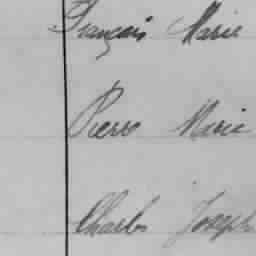 François Marie
Pierre Marie
Charles Joseph